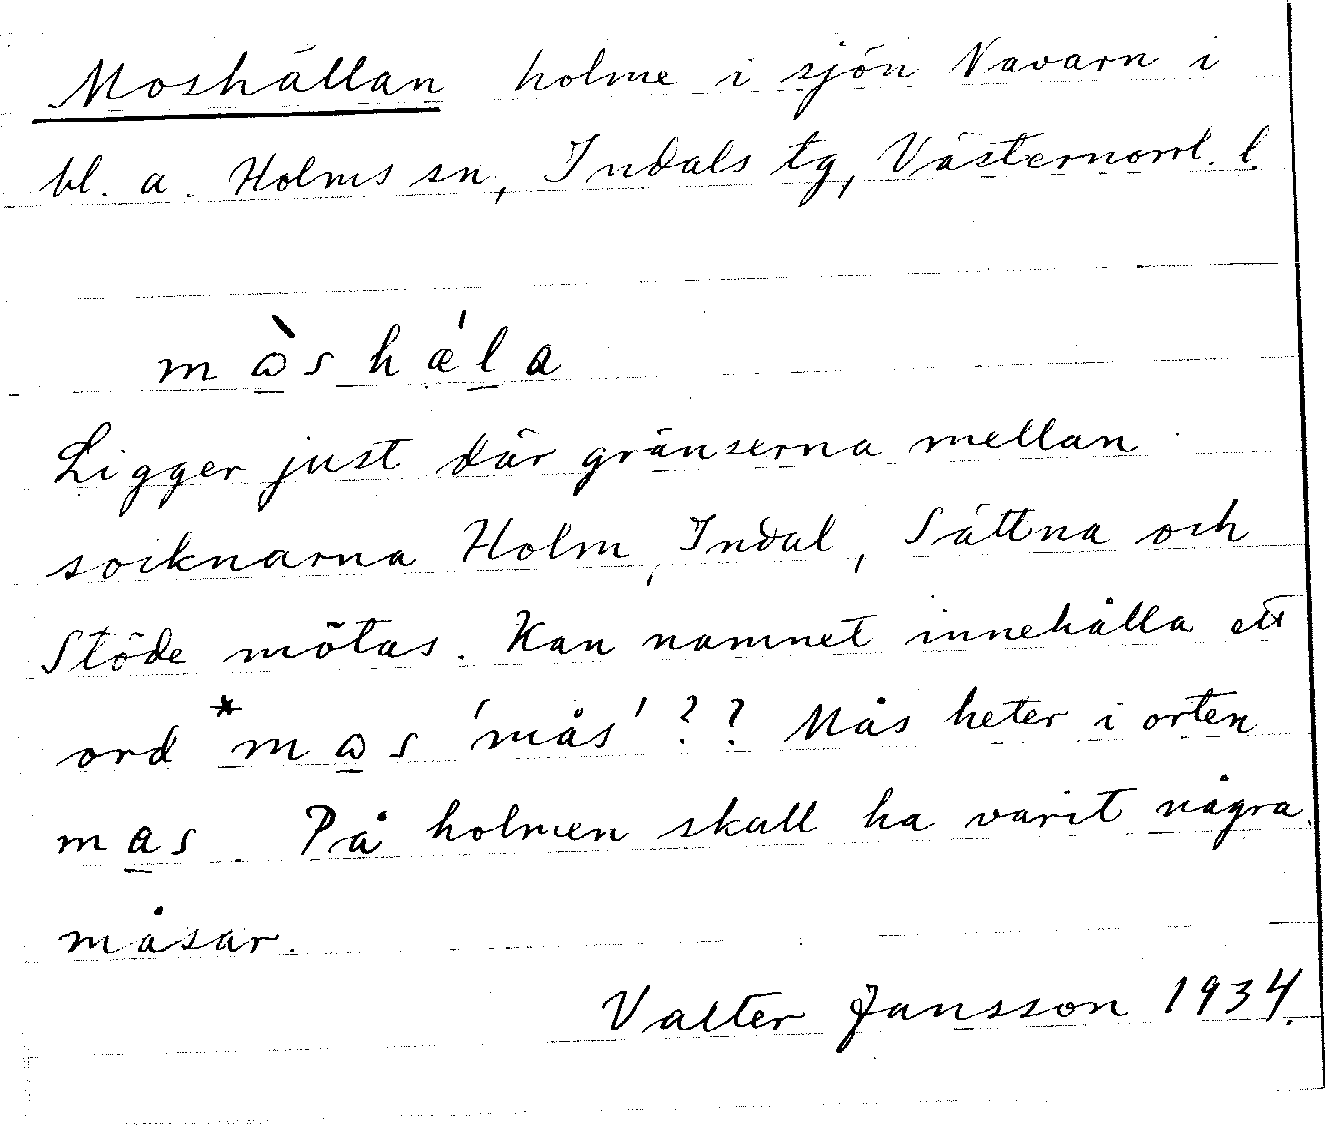 Moshällan holme i sjön Navarn i
bl. a. Holms sn, Indals tg, Västernorrl. l.
mɷ̀s hǽla
Ligger just där gränserna mellan
socknarna Holm, Indal, Sättna och
Stöde mötas. Kan namnet innehålla ett
ord *mɷs 'mås'?? Mås heter i orten
mas. På holmen skall ha varit några
måsar.
Valter Jansson 1934.